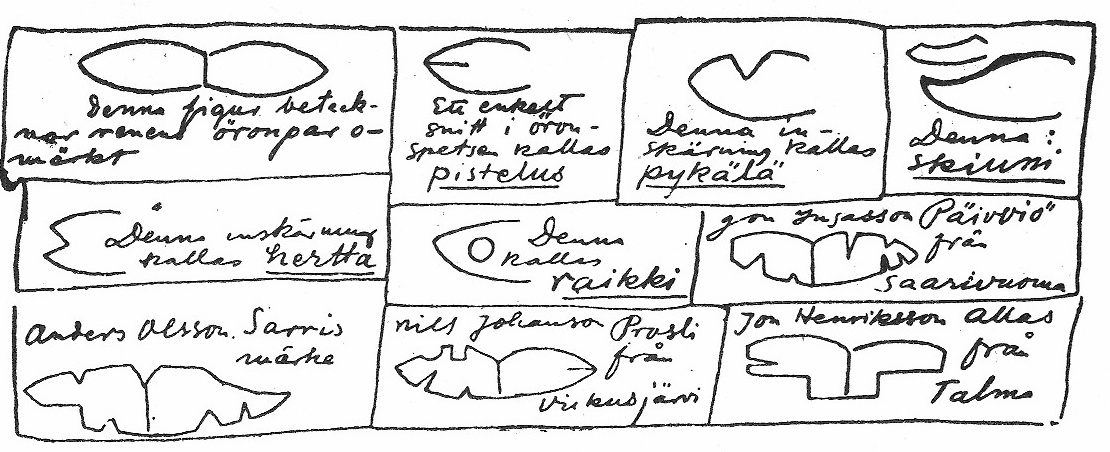 Denna figur beteck-
nar renens öronpar o-
märkt
Ett enkelt
snitt i öron-
spetsen kallas
pistelus
Denna in-
skärning kallas
pykälä
Denna:
skiuni
Denna inskärning
kallas hertta
Denna
kallas
raikki
Jon Ingasson "Päivviö"
från
Saarivuoma
Anders Olsson Sarris
märke
Nils Johanson Prosti
från
Vickusjärvi
Jon Henriksson Allas
från
Talma